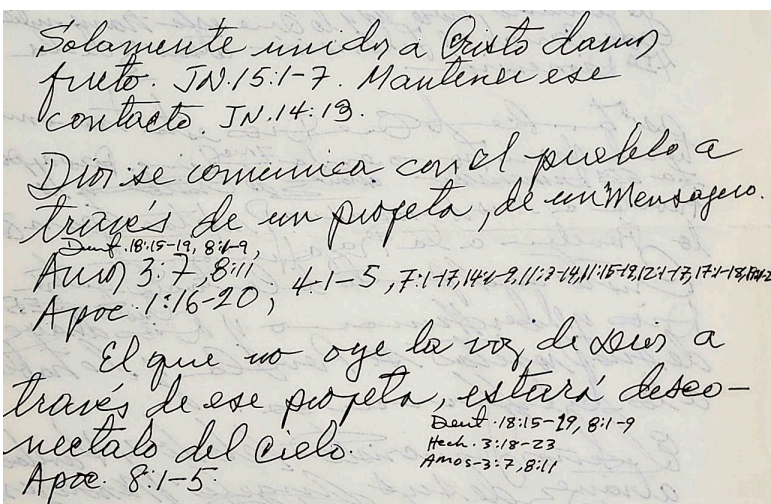 Solamente unidos a Cristo damos
fruto. JN.15:1-7. Mantener ese
contacto. JN.14:13.
Dios se comunica con el pueblo a
través de un profeta, de un Mensagero.
Deut. 18:15-19, 8:1-9,
Amos 3:7, 8:11
Apoc. 1:16-20, 4:1-5, 7:1-17, 14:1-9, 11:3-14, 11:15-19, 12:1-17, 17:1-18,
El que no oye la voz de Dios a
través de ese profeta, estará desco-
nectado del cielo.
Deut. 18:15-19, 8:1-9
Hech. 3:18-23
Amos-3:7, 8:11
Apoc. 8:1-5